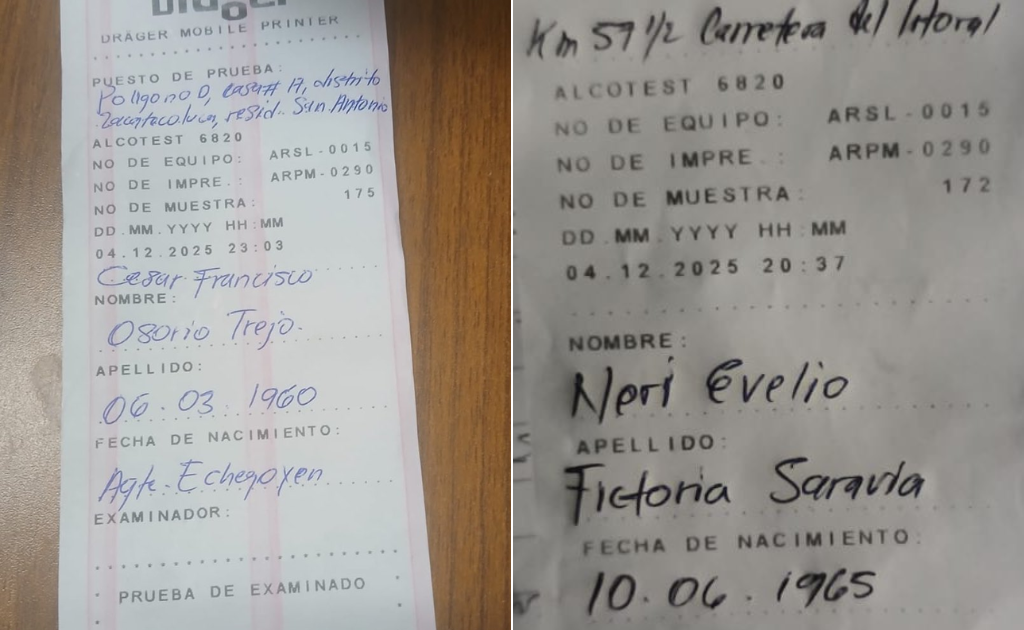 Dräger
DRÄGER MOBILE PRINTER
PUESTO DE PRUEBA:
Poligono D, casa # 17, distrito
Zacatecoluca, resid. San Antonio
ALCOTEST 6820
NO DE EQUIPO: ARSL-0015
NO DE IMPRE.: ARPM-0290
NO DE MUESTRA: 175
DD.MM.YYYY HH:MM
04.12.2025 23:03
Cesar Francisco
NOMBRE:
Osorio Trejo.
APELLIDO:
06.03.1960
FECHA DE NACIMIENTO:
Agte. Echegoyen
EXAMINADOR:
PRUEBA DE EXAMINADO
Km 57 1/2 Carretera del litoral
ALCOTEST 6820
NO DE EQUIPO: ARSL-0015
NO DE IMPRE.: ARPM-0290
NO DE MUESTRA: 172
DD.MM.YYYY HH:MM
04.12.2025 20:37
NOMBRE:
Neri Evelio
APELLIDO:
Fictoria Saravia
FECHA DE NACIMIENTO:
10.06.1965